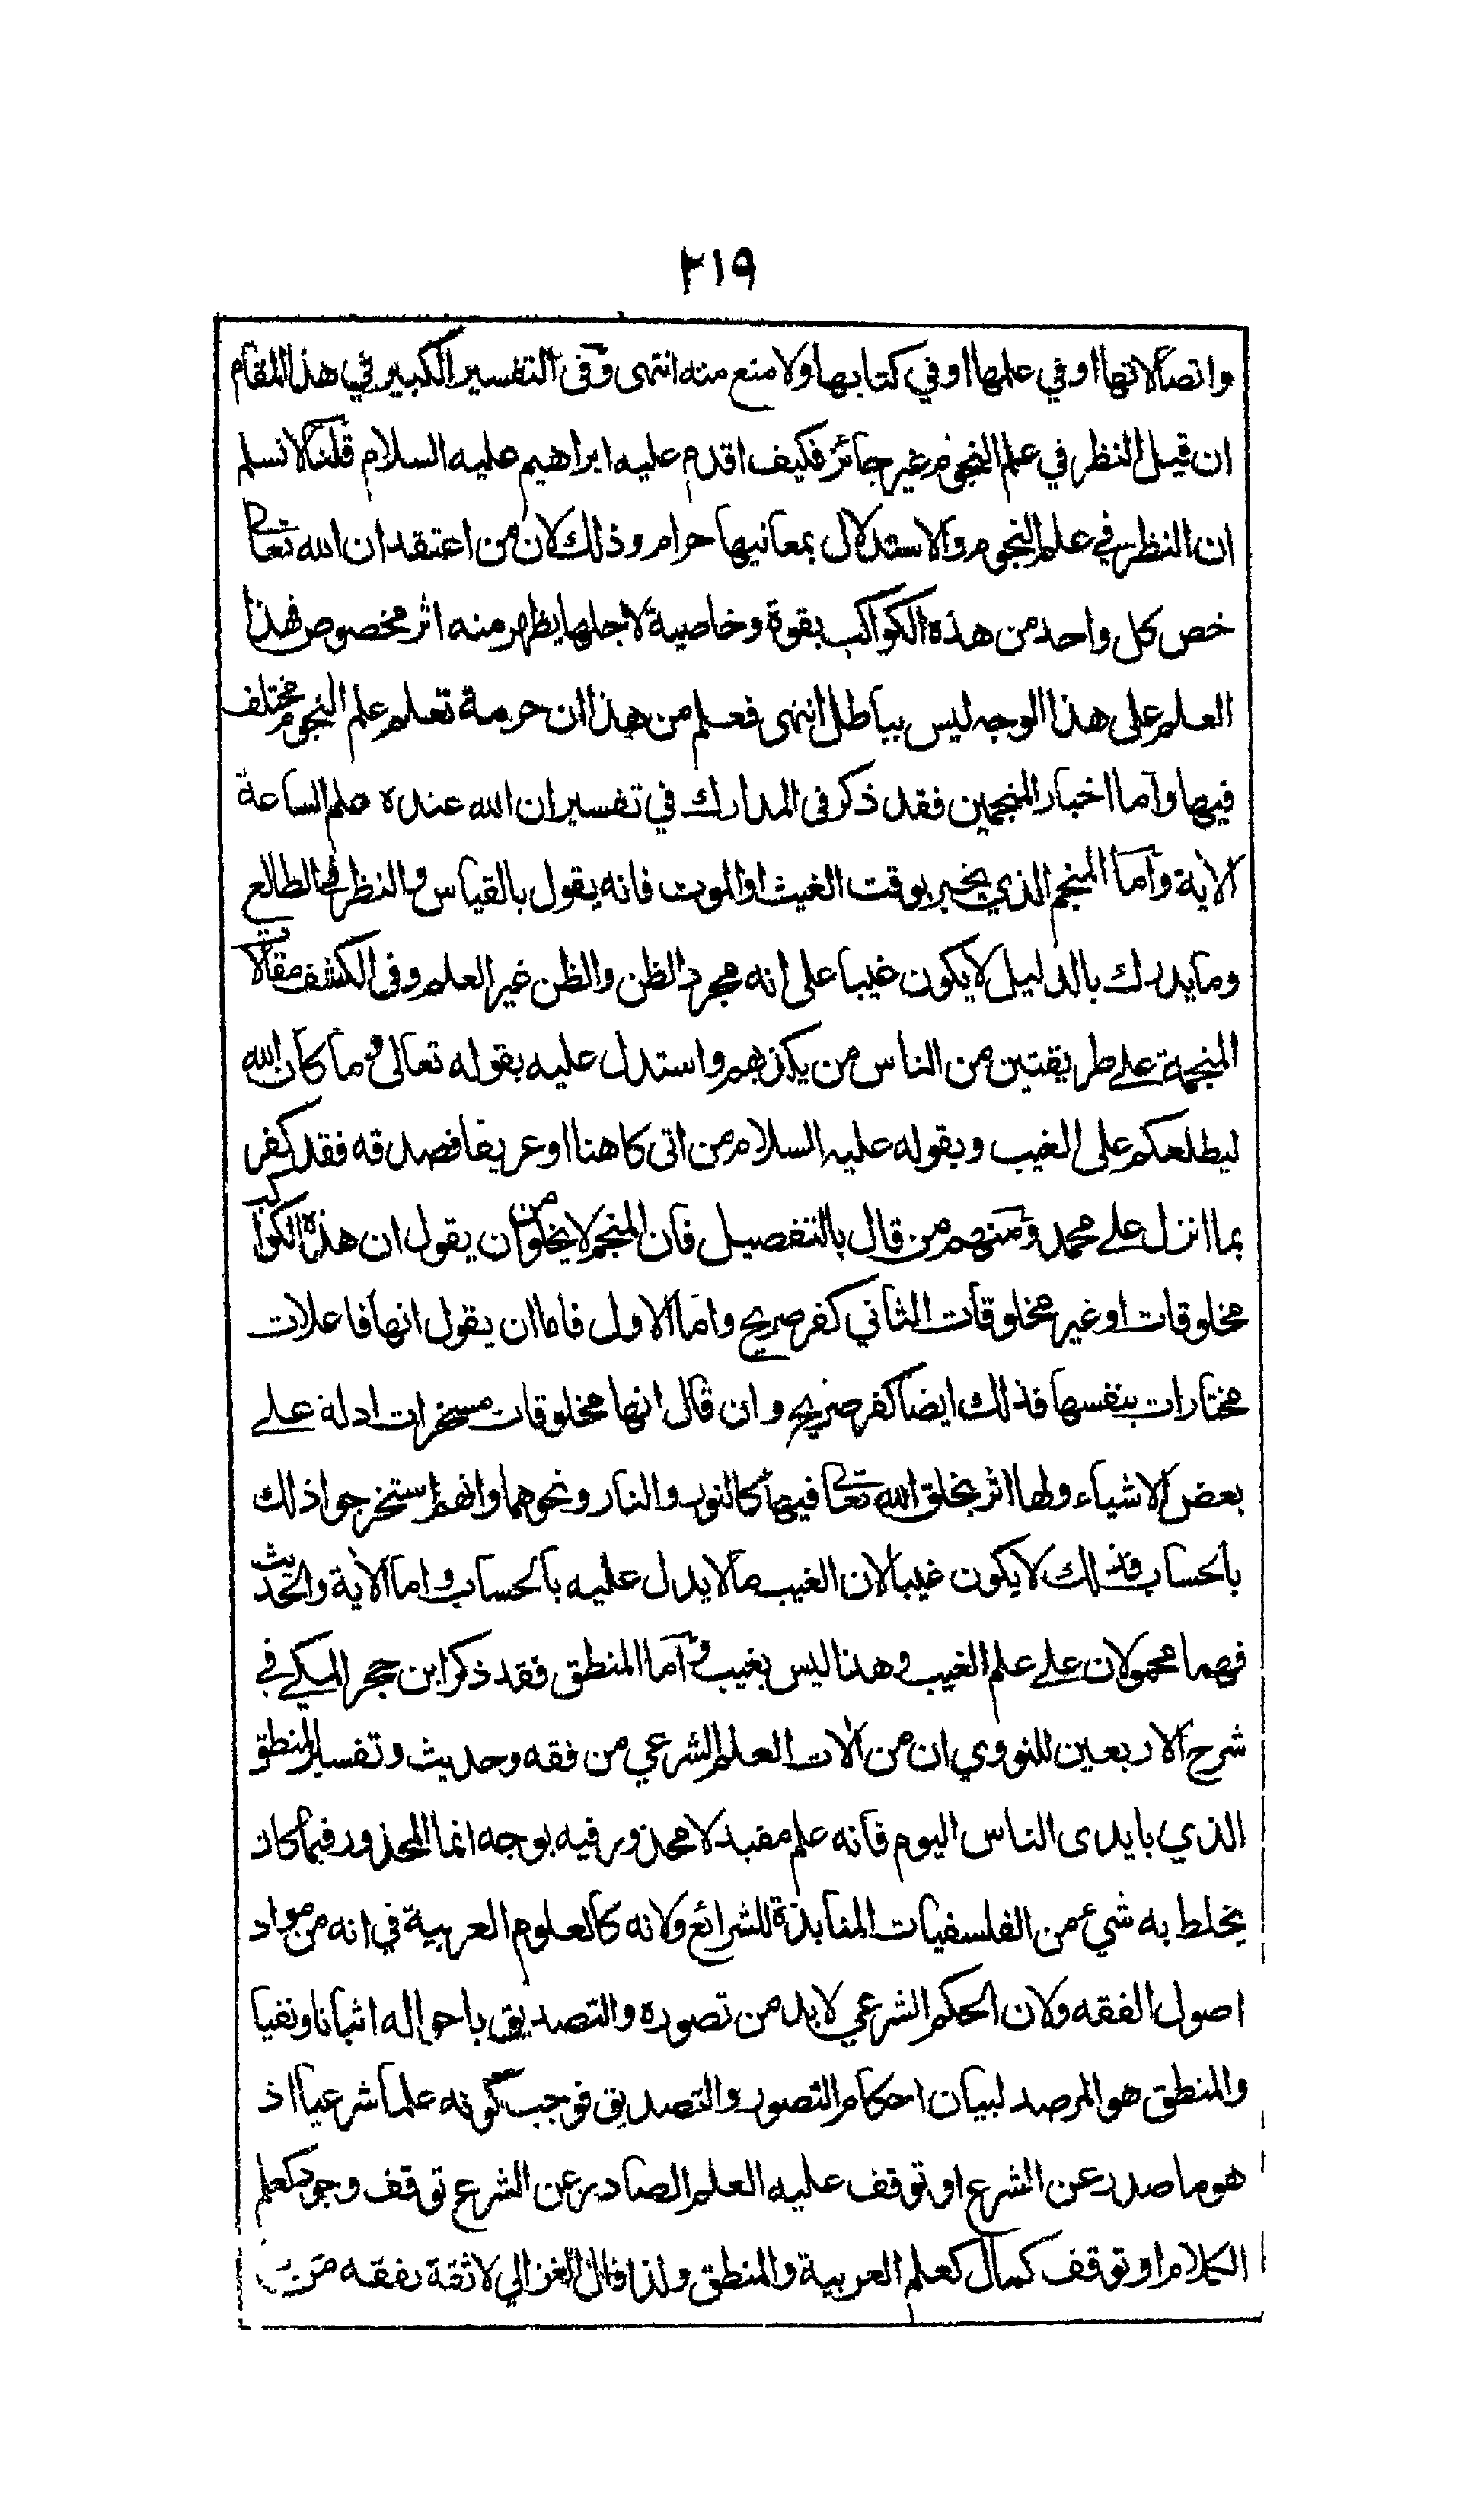 ٢١٩
واتصالاتها او في علمها او في كتابها ولا منع منه انتهى وفى التفسير الكبير في هذا المقام
ان قيل النظر في علم النجوم غير جائز فكيف اقدم عليه ابراهيم عليه السلام قلنا لا نسلم
ان النظر في علم النجوم والاستدلال بمعانيها حرام وذلك لان من اعتقد ان الله تعالى
خص كل واحد من هذه الكواكب بقوة وخاصية لاجلها يظهر منه اثر مخصوص فهذا
العلم على هذا الوجه ليس بباطل انتهى فعلم من هذا ان حرمة تعلم علم النجوم مختلف
فيها واما اخبار المنجمين فقد ذكر فى المدارك في تفسير ان الله عنده علم الساعة
الاية واما المنجم الذي يخبر بوقت الغيث او الموت فانه يقول بالقياس والنظر في الطالع
وما يدرك بالدليل لا يكون غيبا على انه مجرد الظن والظن غير العلم وفى الكشف مقالات
المنجمة على طريقتين من الناس من يكذبهم واستدل عليه بقوله تعالى وما كان الله
ليطلعكم على الغيب وبقوله عليه السلام من اتى كاهنا او عريفا فصدقه فقد كفر
بما انزل على محمد ومنهم من قال بالتفصيل فان المنجم لا يخلو من ان يقول ان هذه الكواكب
مخلوقات او غير مخلوقات الثاني كفر صريح واما الاول فاما ان يقول انها فاعلات
مختارات بنفسها فذلك ايضا كفر صريح وان قال انها مخلوقات مسخرات ادلة على
بعض الاشياء ولها اثر بخلق الله تعالى فيها كالنور والنار ونحوهما وانهم استخرجوا ذلك
بالحساب فذلك لا يكون غيبا لان الغيب ما لا يدل عليه بالحساب واما الاية والحديث
فهما محمولان على علم الغيب وهذا ليس بغيب واما المنطق فقد ذكر ابن حجر المكي في
شرح الاربعين للنووي ان من الات العلم الشرعي من فقه وحديث وتفسير المنطق
الذي بايدى الناس اليوم فانه علم مفيد لا محذور فيه بوجه انما المحذور فيما كان
يخلط به شيء من الفلسفيات المنابذة للشرائع ولانه كالعلوم العربية في انه من مواد
اصول الفقه ولان الحكم الشرعي لا بد من تصوره والتصديق باحواله اثباتا ونفيا
والمنطق هو المرصد لبيان احكام التصور والتصديق فوجب كونه علما شرعيا اذ
هو ما صدر عن الشرع او توقف عليه العلم الصادر عن الشرع توقف وجود كعلم
الكلام او توقف كمال كعلم العربية والمنطق ولذا قال الغزالي لا ثقة بفقه من